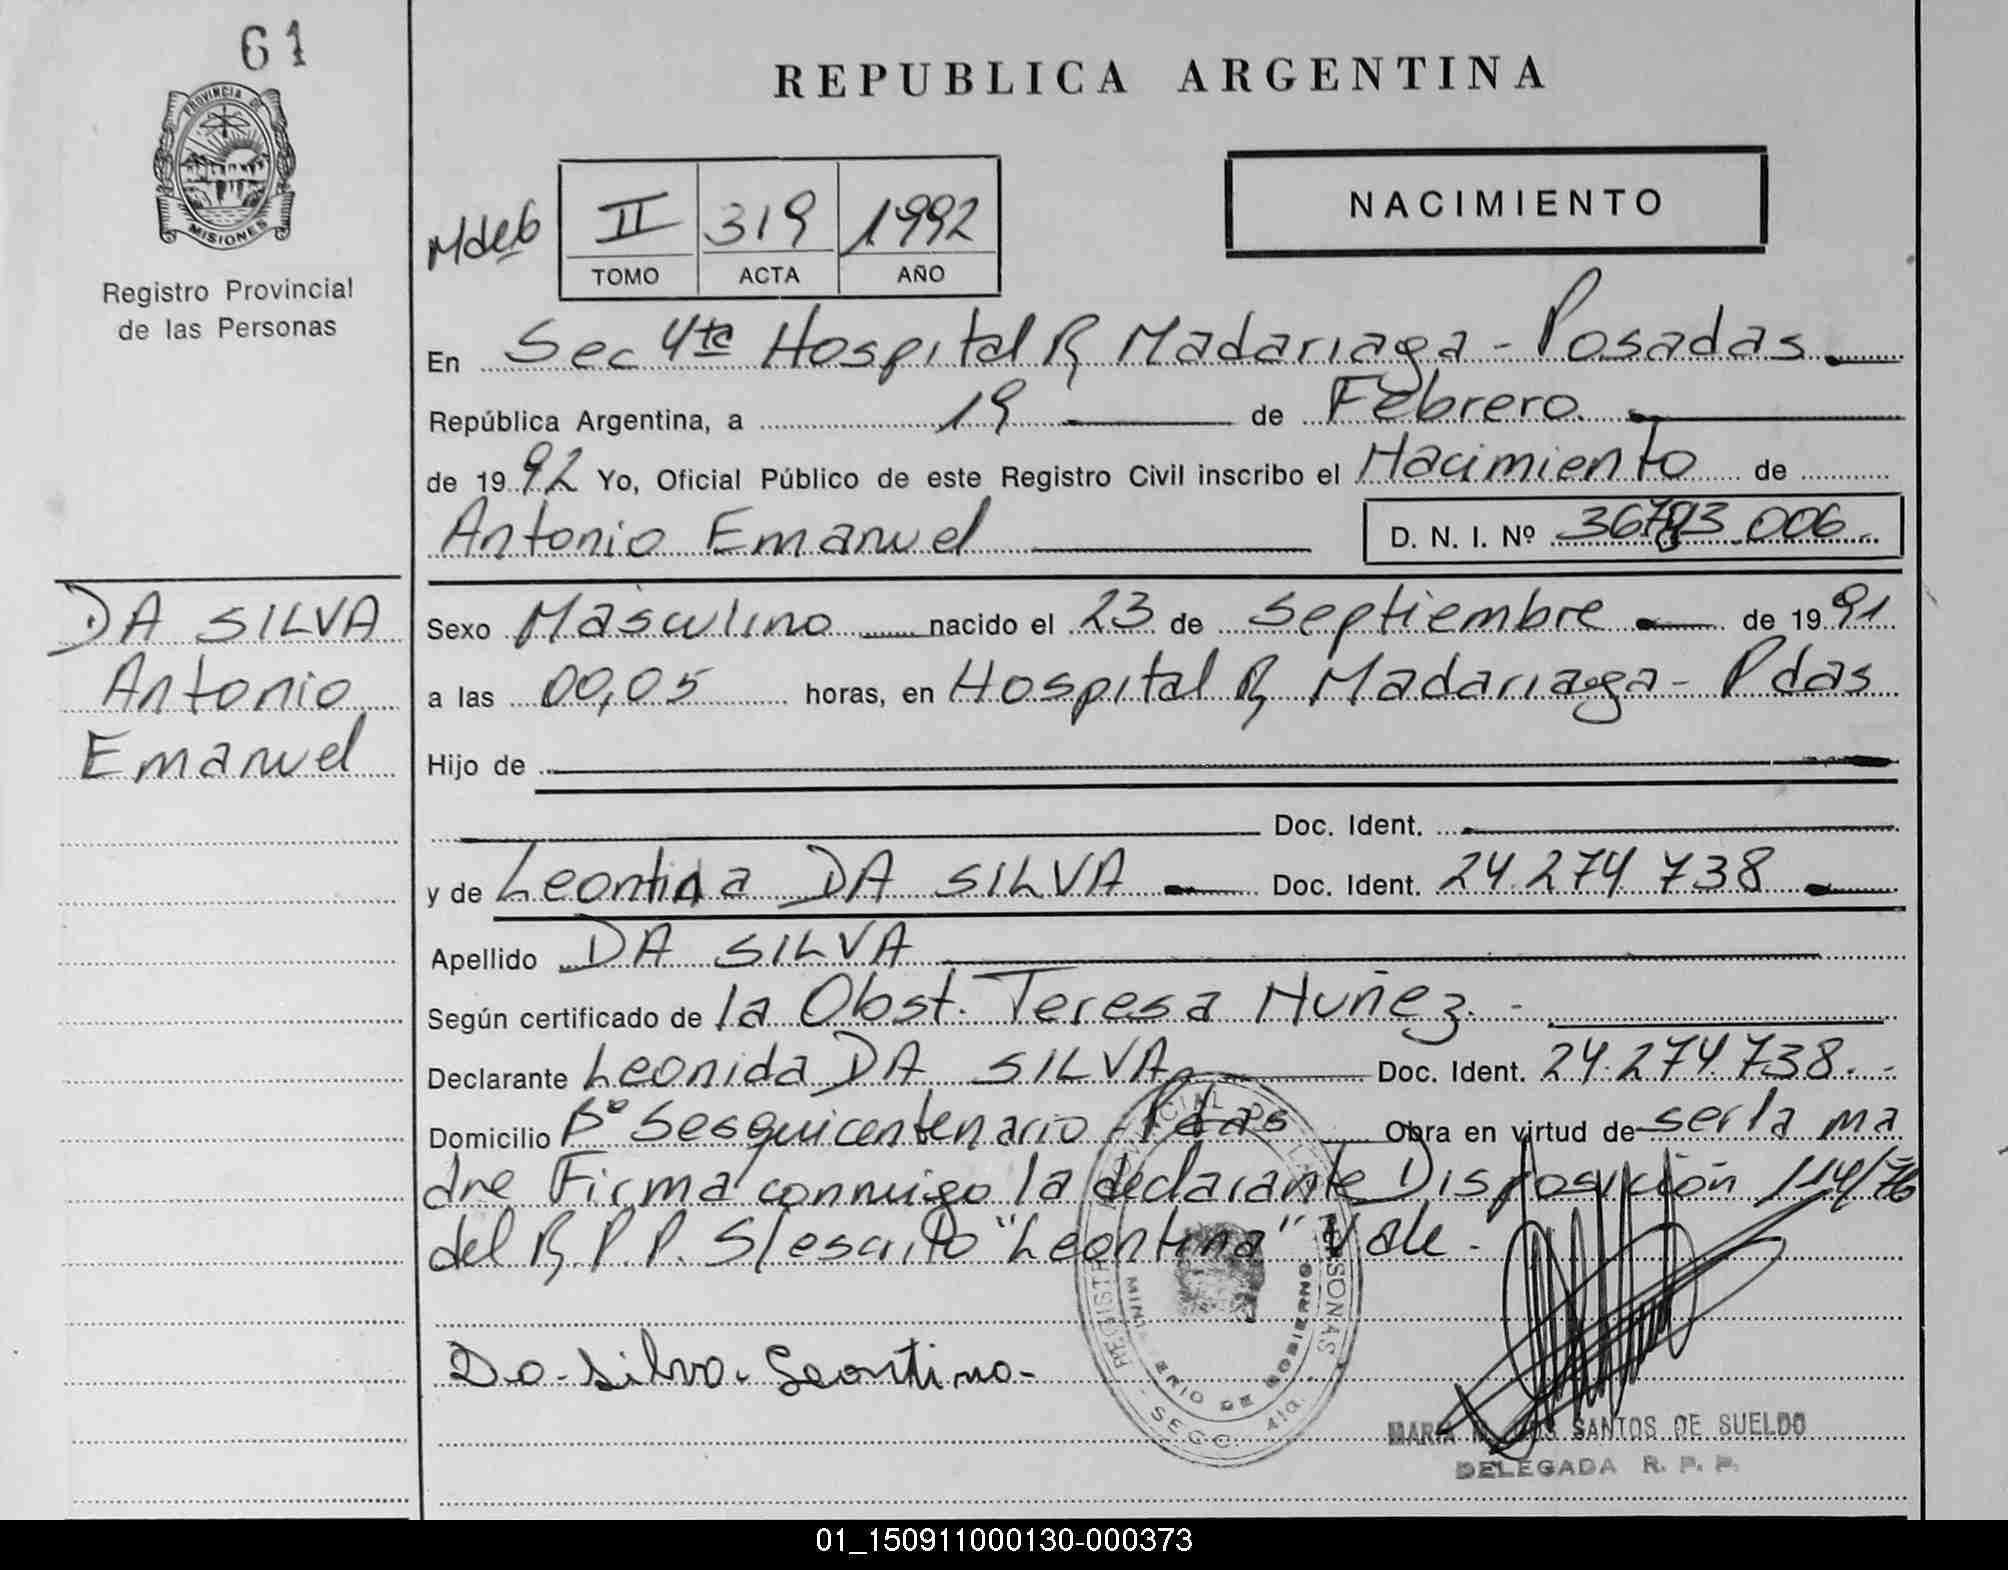 61
PROVINCIA DE
MISIONES
Registro Provincial
de las Personas
REPUBLICA ARGENTINA
NACIMIENTO
Mdeb
II 319 1992
TOMO ACTA AÑO
En Sec 4ta Hospital R Madariaga - Posadas
República Argentina, a 19 de Febrero
de 1992 Yo, Oficial Público de este Registro Civil inscribo el Nacimiento de
Antonio Emanuel D. N. I. Nº 006
DA SILVA
Antonio
Emanuel
Sexo Masculino nacido el 23 de Septiembre de 1991
a las 00,05 horas, en Hospital R Madariaga - Pdas
Hijo de
Doc. Ident.
y de Leontina DA SILVA Doc. Ident. 24.274.738
Apellido DA SILVA
Según certificado de la Obst. Teresa Nuñez.-
Declarante Leonida DA SILVA Doc. Ident. 24.274.738.-
Domicilio Bº Sesquicentenario - Pdas Obra en virtud de ser la ma
dre Firma conmigo la declarante Disposición 114/76
del R.P.P. S/escrito "Leontina" Vale.
Da Silva Leontina
REGISTRO PROVINCIAL DE LAS PERSONAS
MINISTERIO DE GOBIERNO
SECC. 4ta.
MARIA DOS SANTOS DE SUELDO
DELEGADA R. P. P.
01_150911000130-000373